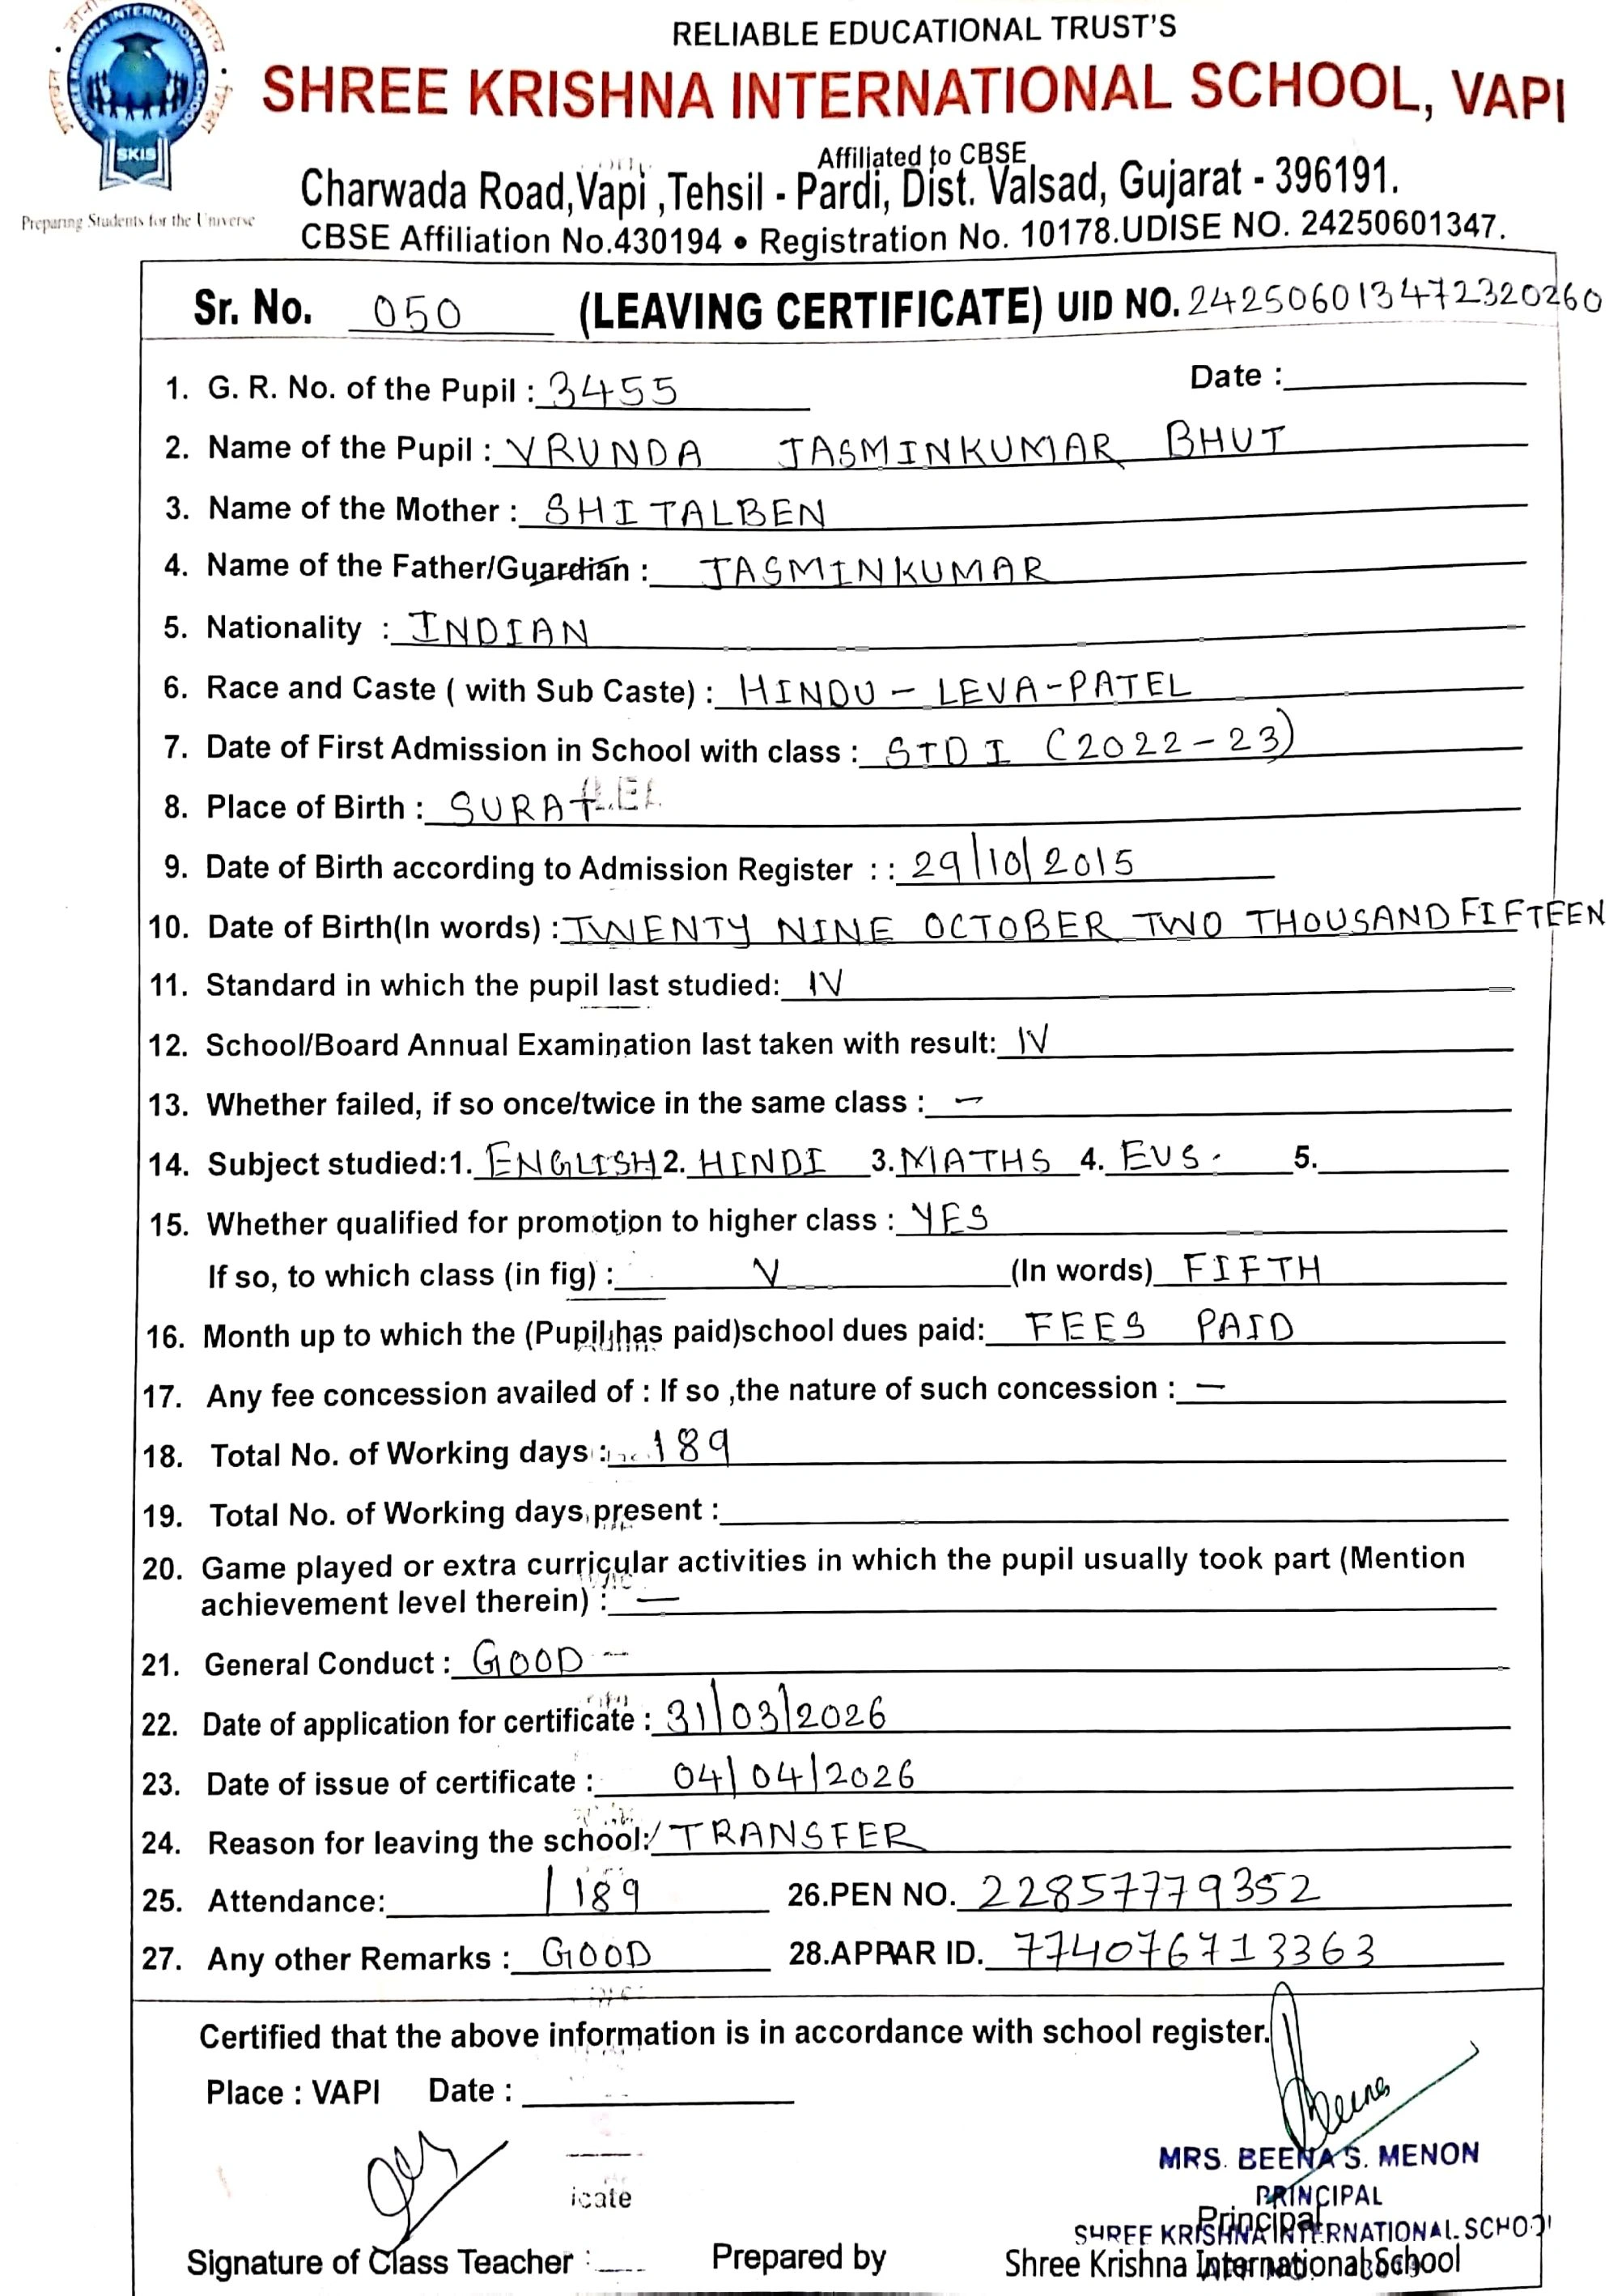 RELIABLE EDUCATIONAL TRUST'S
SHREE KRISHNA INTERNATIONAL SCHOOL, VAPI
SHREE KRISHNA INTERNATIONAL SCHOOL
SKIS
Preparing Students for the Universe
Affiliated to CBSE
Charwada Road,Vapi ,Tehsil - Pardi, Dist. Valsad, Gujarat - 396191.
CBSE Affiliation No.430194 • Registration No. 10178.UDISE NO. 24250601347.
Sr. No. 050 (LEAVING CERTIFICATE) UID NO. 242506013472320260
1. G. R. No. of the Pupil : 3455 Date :
2. Name of the Pupil : VRUNDA JASMINKUMAR BHUT
3. Name of the Mother : SHITALBEN
4. Name of the Father/Guardian : JASMINKUMAR
5. Nationality : INDIAN
6. Race and Caste ( with Sub Caste) : HINDU - LEVA-PATEL
7. Date of First Admission in School with class : STD I (2022-23)
8. Place of Birth : SURAT
9. Date of Birth according to Admission Register : : 29/10/2015
10. Date of Birth(In words) : TWENTY NINE OCTOBER TWO THOUSAND FIFTEEN
11. Standard in which the pupil last studied: IV
12. School/Board Annual Examination last taken with result: IV
13. Whether failed, if so once/twice in the same class : -
14. Subject studied:1. ENGLISH 2. HINDI 3. MATHS 4. EVS. 5.
15. Whether qualified for promotion to higher class : YES
If so, to which class (in fig) : V (In words) FIFTH
16. Month up to which the (Pupil has paid)school dues paid: FEES PAID
17. Any fee concession availed of : If so ,the nature of such concession : -
18. Total No. of Working days : 189
19. Total No. of Working days present :
20. Game played or extra curricular activities in which the pupil usually took part (Mention
achievement level therein) : -
21. General Conduct : GOOD -
22. Date of application for certificate : 31/03/2026
23. Date of issue of certificate : 04/04/2026
24. Reason for leaving the school: TRANSFER
25. Attendance: /189 26.PEN NO. 22857779352
27. Any other Remarks : GOOD 28.APPAR ID. 774076713363
Certified that the above information is in accordance with school register.
Place : VAPI Date :
Beena
MRS. BEENA S. MENON
icate
PRINCIPAL
Principal
SHREE KRISHNA INTERNATIONAL SCHOOL
Signature of Class Teacher : Prepared by Shree Krishna International School